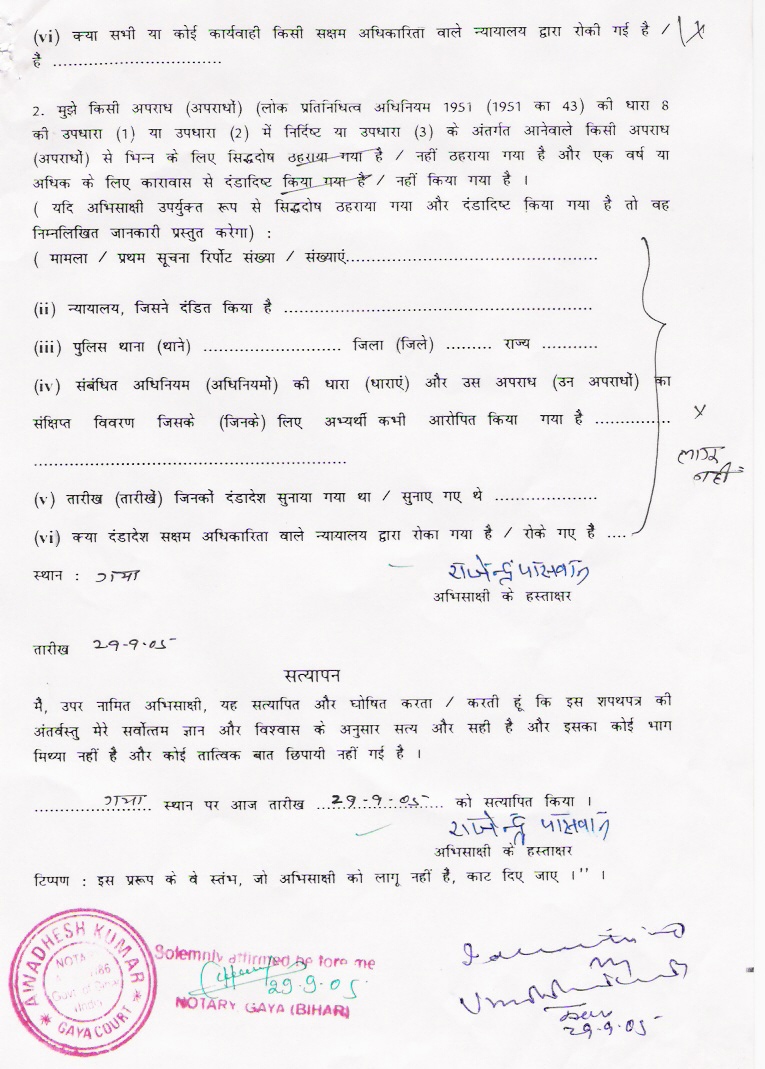 (vi) क्या सभी या कोई कार्यवाही किसी सक्षम अधिकारिता वाले न्यायालय द्वारा रोकी गई है / X
है .................................
2. मुझे किसी अपराध (अपराधों) (लोक प्रतिनिधित्व अधिनियम 1951 (1951 का 43) की धारा 8
की उपधारा (1) या उपधारा (2) में निर्दिष्ट या उपधारा (3) के अंतर्गत आनेवाले किसी अपराध
(अपराधों) से भिन्न के लिए सिद्धदोष ठहराया गया है / नहीं ठहराया गया है और एक वर्ष या
अधिक के लिए कारावास से दंडादिष्ट किया गया है / नहीं किया गया है ।
( यदि अभिसाक्षी उपर्युक्त रूप से सिद्धदोष ठहराया गया और दंडादिष्ट किया गया है तो वह
निम्नलिखित जानकारी प्रस्तुत करेगा) :
( मामला / प्रथम सूचना रिर्पोट संख्या / संख्याएं.................................................
(ii) न्यायालय, जिसने दंडित किया है ............................................................
(iii) पुलिस थाना (थाने) ........................... जिला (जिले) ......... राज्य ...........
(iv) संबंधित अधिनियम (अधिनियमों) की धारा (धाराएं) और उस अपराध (उन अपराधों) का
संक्षिप्त विवरण जिसके (जिनके) लिए अभ्यर्थी कभी आरोपित किया गया है ............... X
............................................................. लागू
नहीं
(v) तारीख (तारीखें) जिनकों दंडादेश सुनाया गया था / सुनाए गए थे ....................
(vi) क्या दंडादेश सक्षम अधिकारिता वाले न्यायालय द्वारा रोका गया है / रोके गए है ....
स्थान : गया राजेन्द्र पासवान
अभिसाक्षी के हस्ताक्षर
तारीख 29-9-05
सत्यापन
मै, उपर नामित अभिसाक्षी, यह सत्यापित और घोषित करता / करती हूं कि इस शपथपत्र की
अंतर्वस्तु मेरे सर्वोत्तम ज्ञान और विश्वास के अनुसार सत्य और सही है और इसका कोई भाग
मिथ्या नहीं है और कोई तात्विक बात छिपायी नहीं गई है ।
..............गया स्थान पर आज तारीख ...29-9-05.... को सत्यापित किया ।
राजेन्द्र पासवान
अभिसाक्षी के हस्ताक्षर
टिप्पण : इस प्ररूप के वे स्तंभ, जो अभिसाक्षी को लागू नहीं है, काट दिए जाए ।'' ।
AWADHESH KUMAR
GAYA COURT
Solemnly affirmed before me
29.9.05
NOTARY GAYA (BIHAR)
29-9-05